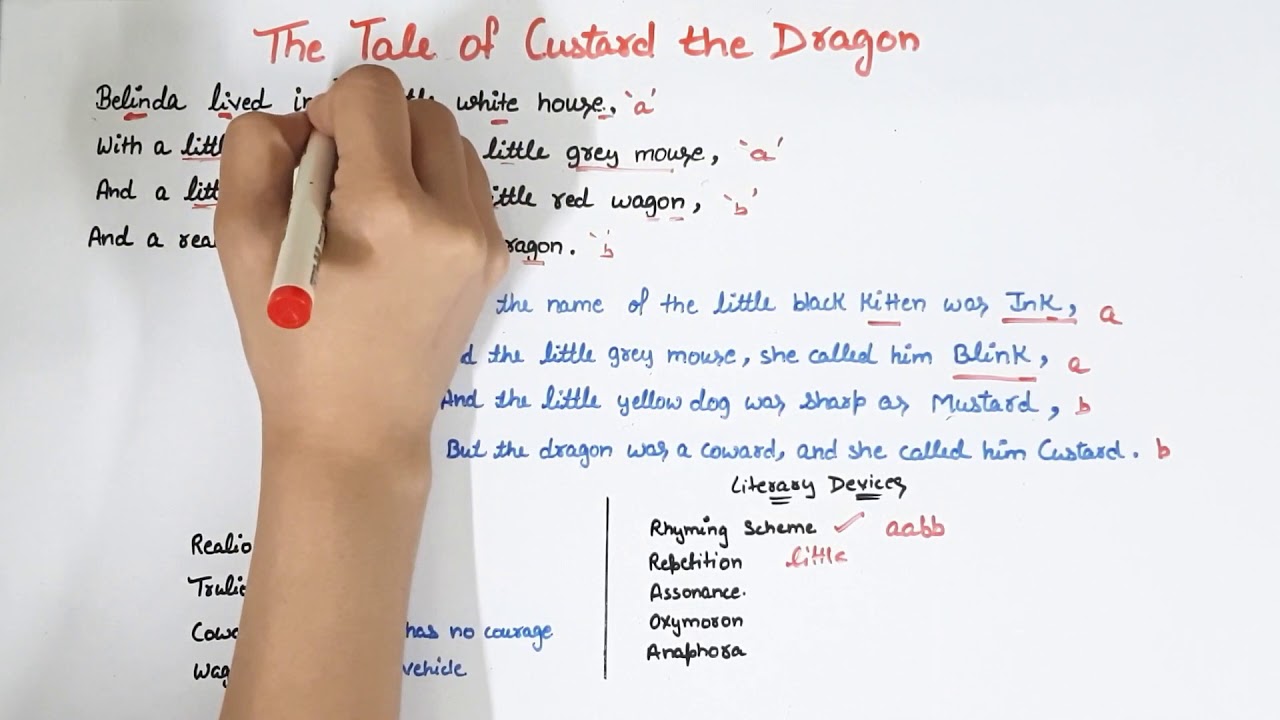 The Tale of Custard the Dragon
Belinda lived in white house, 'a'
With a little grey mouse, 'a'
And a little red wagon, 'b'
And a 'b'
the name of the little black Kitten was Ink, a
the little grey mouse, she called him Blink, a
And the little yellow dog was sharp as Mustard, b
But the dragon was a coward, and she called him Custard. b
Literary Devices
Rhyming Scheme ✓ aabb
Repetition little
Assonance.
Oxymoron
Anaphora
has no courage
vehicle